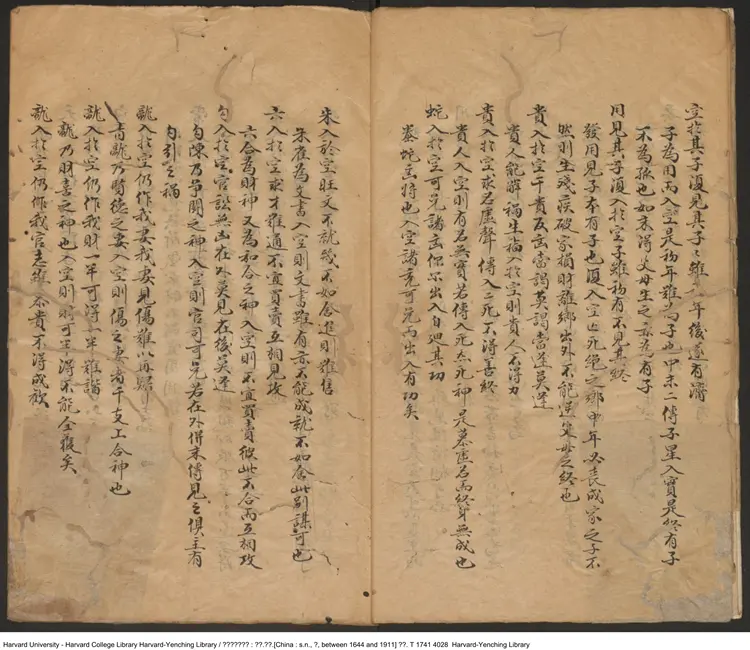 空於其子須見其子子雖 年後遂有濟
子為用而入空是初年難為子也中末二傳子星入實是終有子
不為孤也如末傳父母生之亦為有子
用見其子須入於空子雖初有不見其終
發用見子本有子也須入空亡死絕之鄉中年必喪成家之子不
然則生殘疾破家損財離鄉出外不能送父母之終也
貴入於空干貴反言當謁莫謁當逆莫逆
貴人能解禍生福入於空則貴人不得力
貴入於空求名虛聲傳入二死不得善終
貴人入空則有名無實若傳入死炁死神是慕虛名而終身無成也
蛇入於空可免諸言你不出入自迎其功
螣蛇凶將也入空諸竟可免而出入有功矣
朱入於空旺文不就幾不如舍進則難信
朱雀為文書入空則文書雖有亦不能成就不如舍此別謀可也
六入於空求才難通不宜買賣互相見攻
六合為財神又為和合之神入空則不宜買賣彼此不合而互相攻
勾入於空官訟無凶在外莫見在後莫逆
勾陳乃爭鬬之神入空則官司可免若在外併末傳見之俱主有
勾引之禍
龍入於空仍作我妻我妻見傷難以再歸
青龍乃賢德之妻入空則傷之妻者干支工合神也
龍入於空仍作我財一半可得一半難諧
龍乃財喜之神也入空則財可半得不能全獲矣
龍入於空仍作我官志雖不貴不得成歡
Harvard University - Harvard College Library Harvard-Yenching Library / ??????? : ??.??.[China : s.n., ?, between 1644 and 1911] ??. T 1741 4028 Harvard-Yenching Library